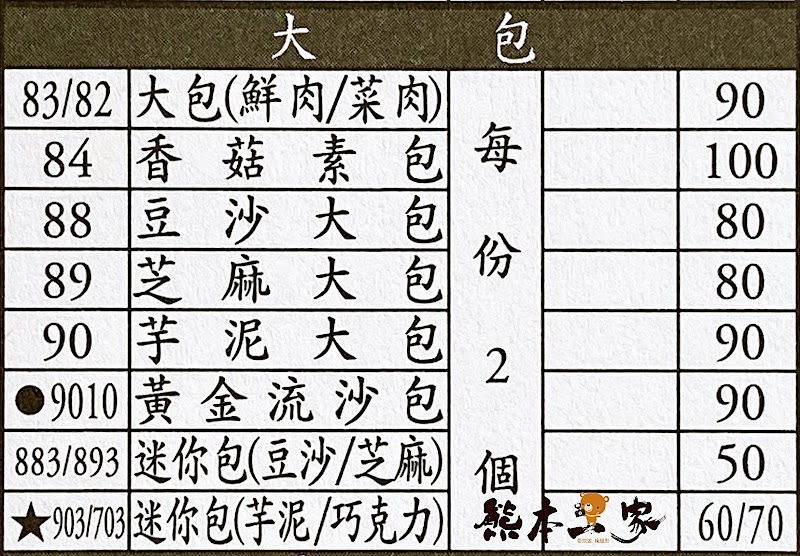 大包
83/82 大包(鮮肉/菜肉) 90
84 香菇素包 100
88 豆沙大包 80
89 芝麻大包 80
90 芋泥大包 90
●9010 黃金流沙包 90
883/893 迷你包(豆沙/芝麻) 50
★903/703 迷你包(芋泥/巧克力) 60/70
每份2個
熊本一家